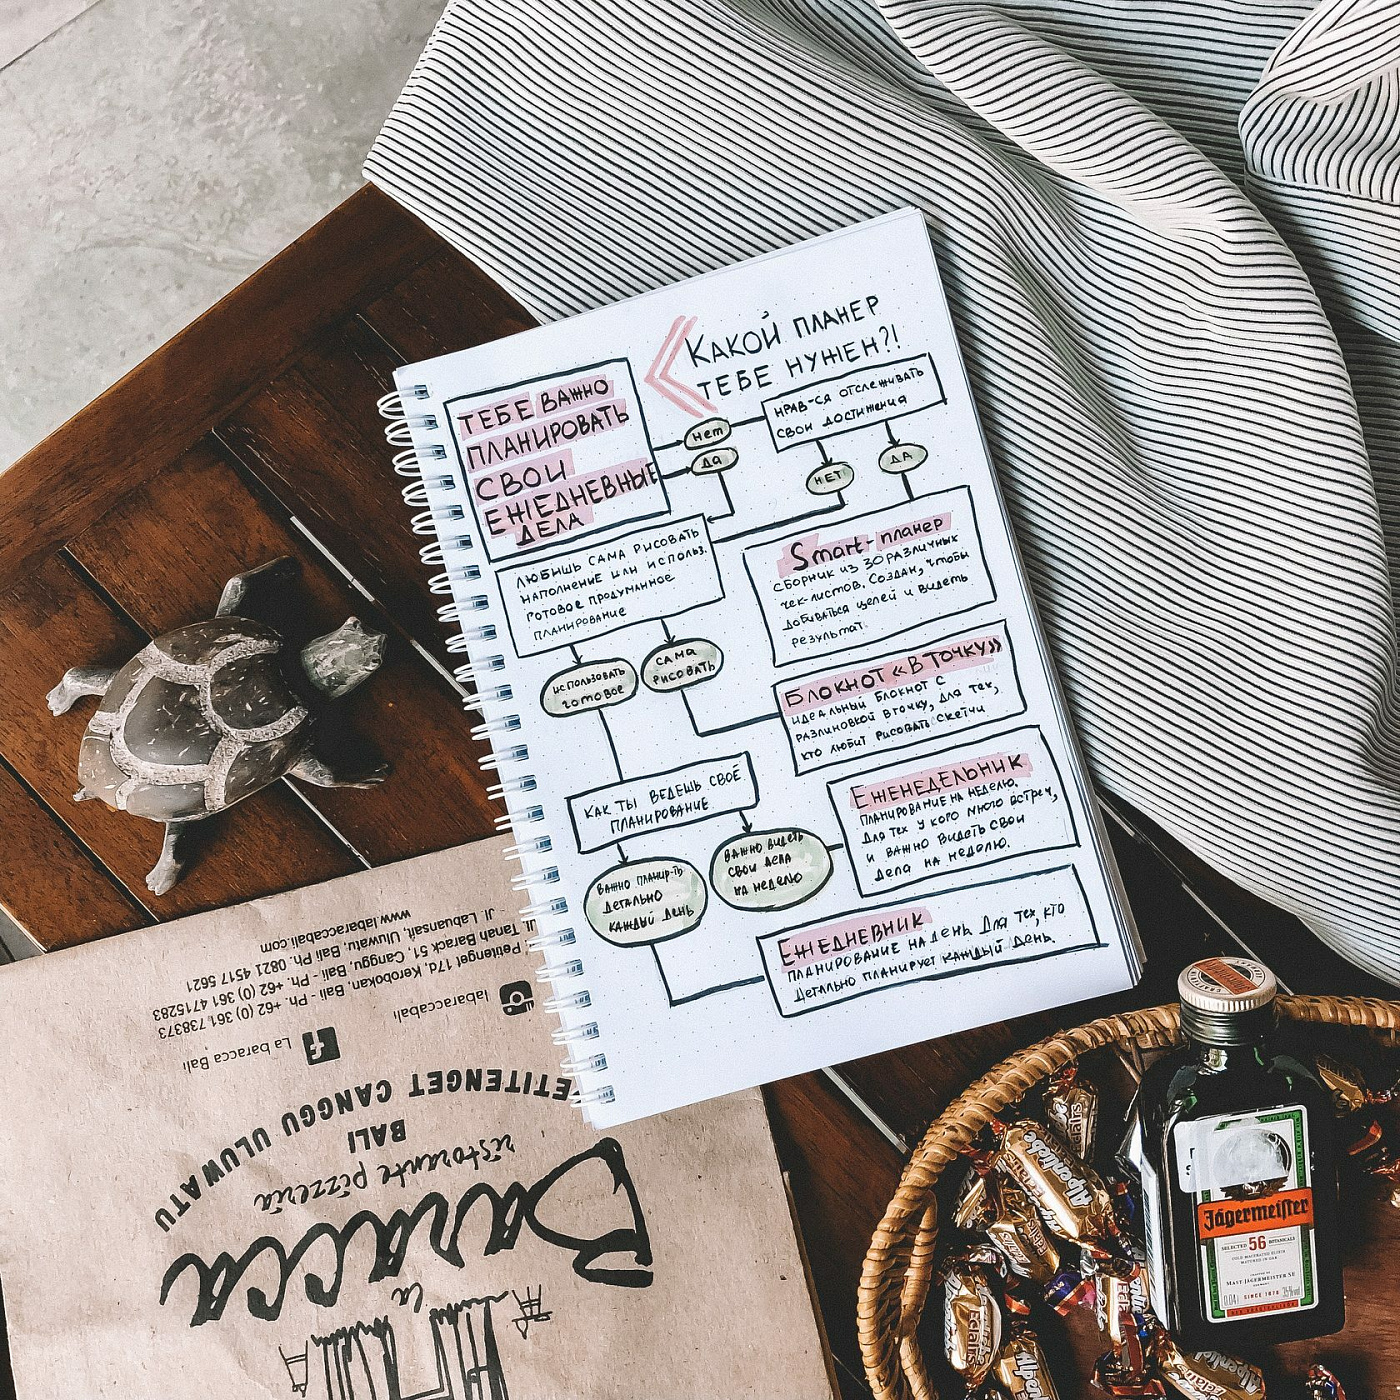 КАКОЙ ПЛАНЕР
ТЕБЕ НУЖЕН?!
ТЕБЕ ВАЖНО
ПЛАНИРОВАТЬ
СВОИ
ЕЖЕДНЕВНЫЕ
ДЕЛА
нет
да
НРАВ-СЯ ОТСЛЕЖИВАТЬ
СВОИ ДОСТИЖЕНИЯ
НЕТ
ДА
ЛЮБИШЬ САМА РИСОВАТЬ
НАПОЛНЕНИЕ ИЛИ ИСПОЛЬЗ.
ГОТОВОЕ ПРОДУМАННОЕ
ПЛАНИРОВАНИЕ
Smart-планер
СБОРНИК ИЗ 30 РАЗЛИЧНЫХ
чек-листов. Создан, чтобы
добиваться целей и видеть
результат.
ИСПОЛЬЗОВАТЬ
ГОТОВОЕ
САМА
РИСОВАТЬ
БЛОКНОТ «В ТОЧКУ»
ИДЕАЛЬНЫЙ БЛОКНОТ С
РАЗЛИНОВКОЙ В ТОЧКУ, ДЛЯ ТЕХ,
КТО ЛЮБИТ РИСОВАТЬ СКЕТЧИ
КАК ТЫ ВЕДЕШЬ СВОЁ
ПЛАНИРОВАНИЕ
ЕЖЕНЕДЕЛЬНИК
ПЛАНИРОВАНИЕ НА НЕДЕЛЮ.
Для тех у кого много встреч,
и важно видеть свои
дела на неделю.
ВАЖНО ПЛАНИР-ТЬ
ДЕТАЛЬНО
КАЖДЫЙ ДЕНЬ
ВАЖНО ВИДЕТЬ
СВОИ ДЕЛА
НА НЕДЕЛЮ
ЕЖЕДНЕВНИК
ПЛАНИРОВАНИЕ НА ДЕНЬ. Для тех, кто
детально планирует каждый день.
la
Baracca
ristorante pizzeria
BALI
PETITENGET CANGGU ULUWATU
La baracca Bali
labaraccabali
Jl. Petitenget 17d, Kerobokan, Bali - Ph. +62 (0) 361.738373
Jl. Tanah Barack 51, Canggu, Bali - Ph. +62 (0) 361 4715283
Jl. Labuansait, Uluwatu, Bali Ph. 0821 4517 5621
www.labaraccabali.com
Jägermeister
SELECTED 56 BOTANICALS
MAST-JÄGERMEISTER SE
0,04 l SINCE 1878 35% vol
Alpenliebe
Eclairs
Alpenliebe
Eclairs
Alpenliebe